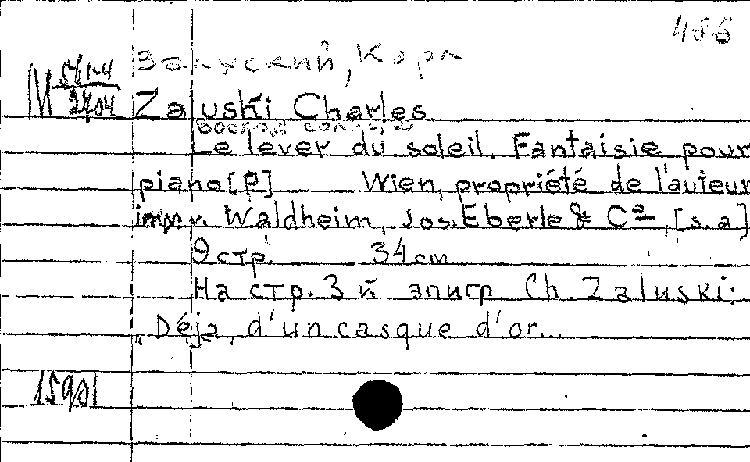 486
Залуский, Карл
М 5614/2704
Zaluski Charles
Восход солнца
Le lever du soleil. Fantaisie pour
piano[P] Wien, propriété de l'auteur
impr. Waldheim, Jos.Eberle & Cª, [s.a]
9 стр. 34 cm
На стр. 3 й эпигр Ch. Zaluski:
"Déja, d'un casque d'or...